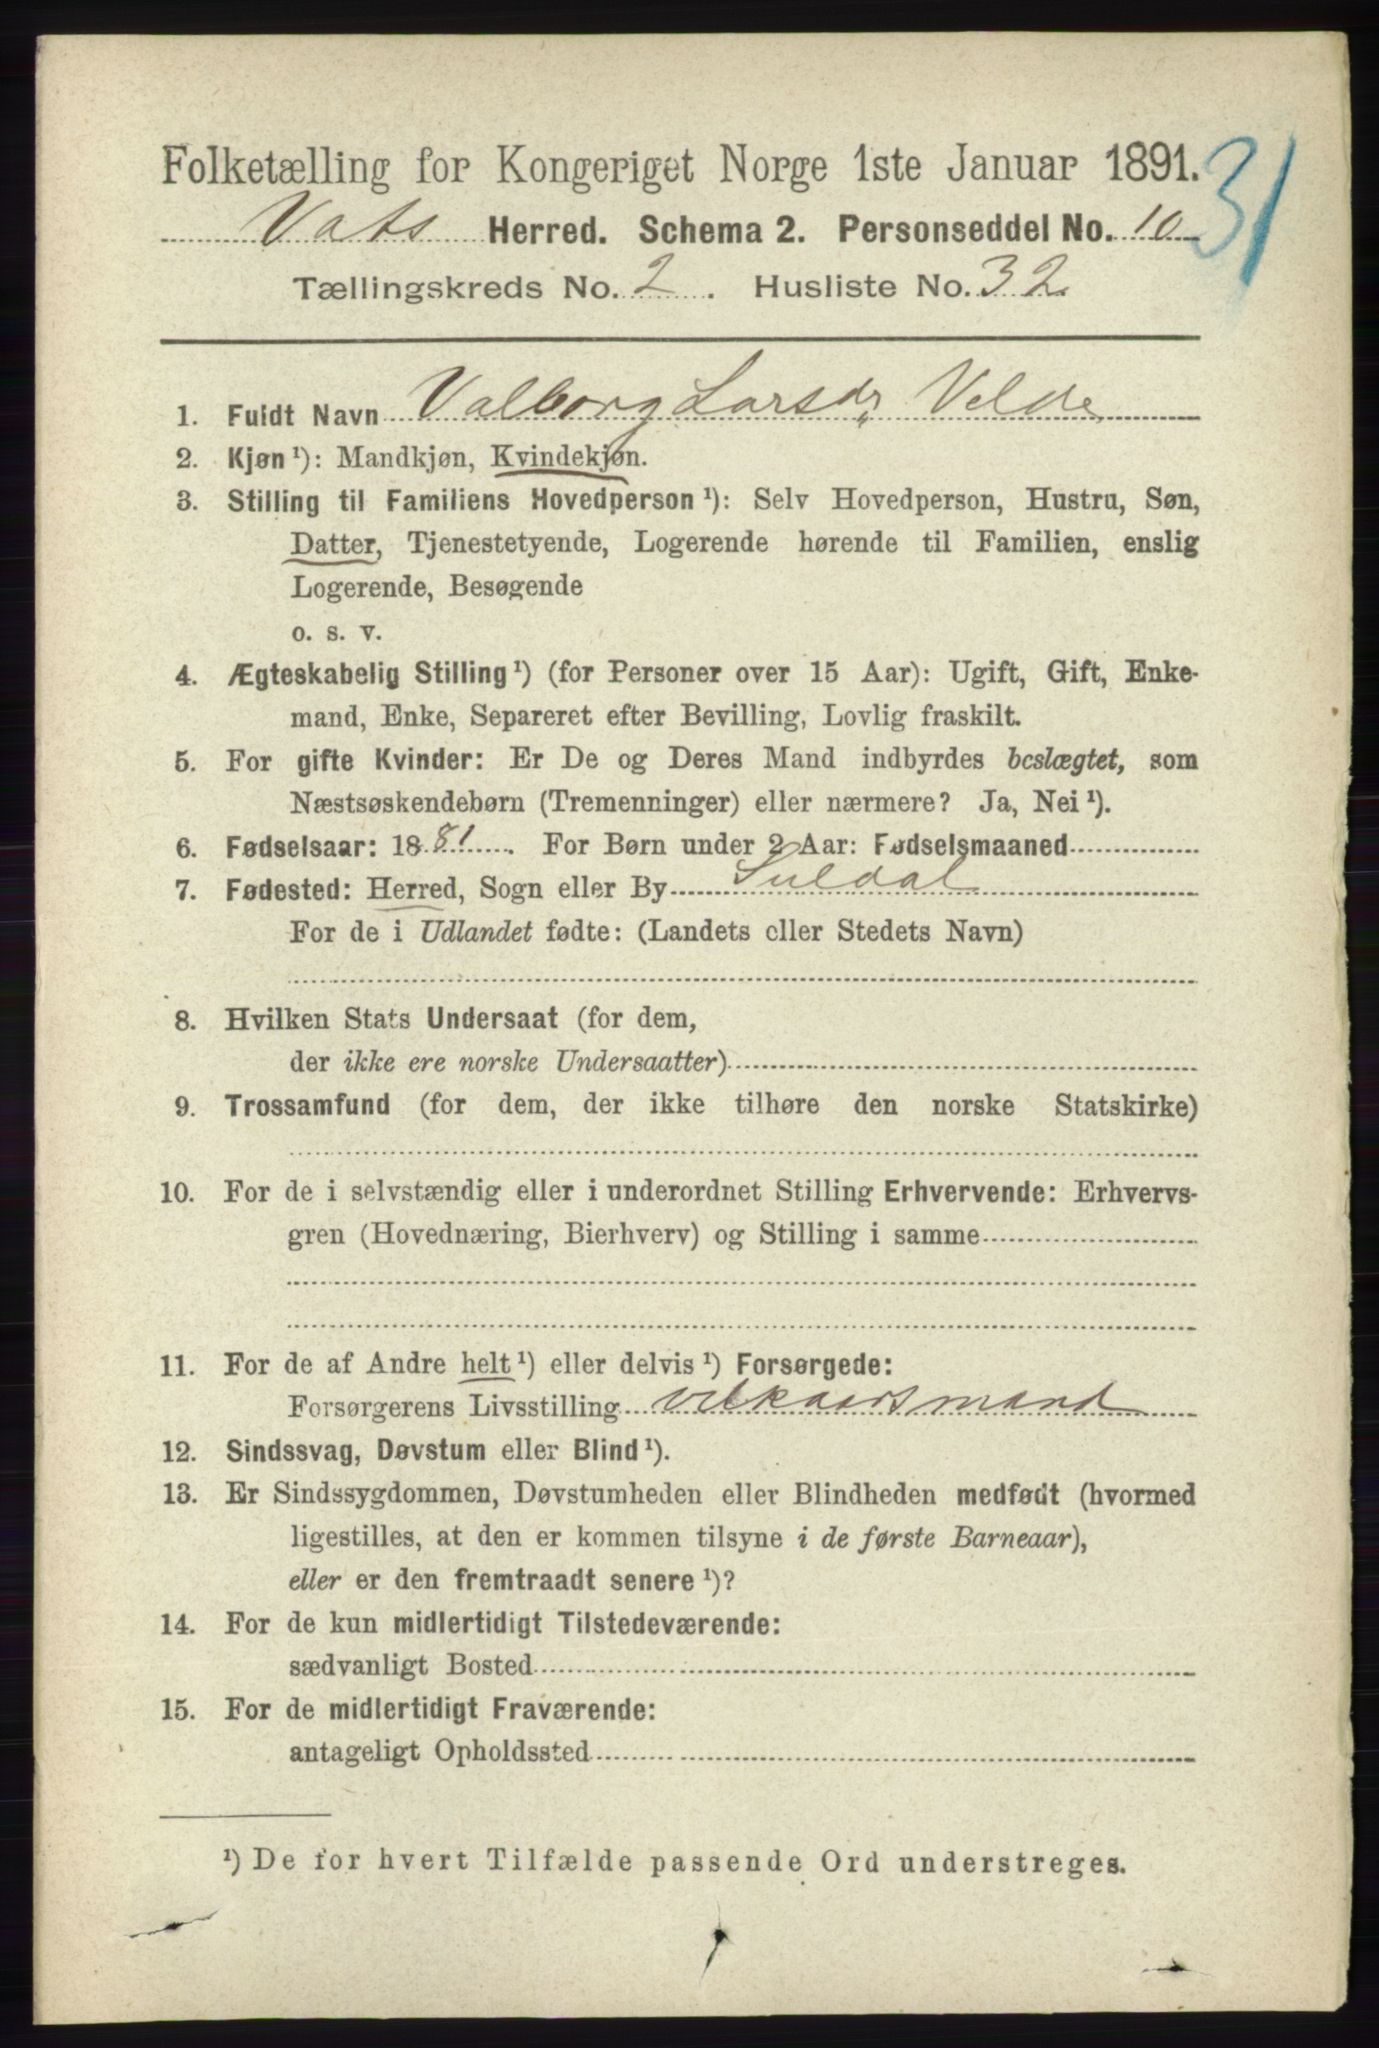 Folketælling for Kongeriget Norge 1ste Januar 1891.
31
Vats Herred. Schema 2. Personseddel No. 10
Tællingskreds No. 2. Husliste No. 32
1. Fuldt Navn Valborg Larsdr Velde
2. Kjøn ¹): Mandkjøn, Kvindekjøn.
3. Stilling til Familiens Hovedperson ¹): Selv Hovedperson, Hustru, Søn,
Datter, Tjenestetyende, Logerende hørende til Familien, enslig
Logerende, Besøgende
o. s. v.
4. Ægteskabelig Stilling ¹) (for Personer over 15 Aar): Ugift, Gift, Enke-
mand, Enke, Separeret efter Bevilling, Lovlig fraskilt.
5. For gifte Kvinder: Er De og Deres Mand indbyrdes beslægtet, som
Næstsøskendebørn (Tremenninger) eller nærmere? Ja, Nei ¹).
6. Fødselsaar: 1881. For Børn under 2 Aar: Fødselsmaaned
7. Fødested: Herred, Sogn eller By Suldal
For de i Udlandet fødte: (Landets eller Stedets Navn)
8. Hvilken Stats Undersaat (for dem,
der ikke ere norske Undersaatter)
9. Trossamfund (for dem, der ikke tilhøre den norske Statskirke)
10. For de i selvstændig eller i underordnet Stilling Erhvervende: Erhvervs-
gren (Hovednæring, Bierhverv) og Stilling i samme
11. For de af Andre helt ¹) eller delvis ¹) Forsørgede:
Forsørgerens Livsstilling vilkaarsmand
12. Sindssvag, Døvstum eller Blind ¹).
13. Er Sindssygdommen, Døvstumheden eller Blindheden medfødt (hvormed
ligestilles, at den er kommen tilsyne i de første Barneaar),
eller er den fremtraadt senere ¹)?
14. For de kun midlertidigt Tilstedeværende:
sædvanligt Bosted
15. For de midlertidigt Fraværende:
antageligt Opholdssted
¹) De for hvert Tilfælde passende Ord understreges.